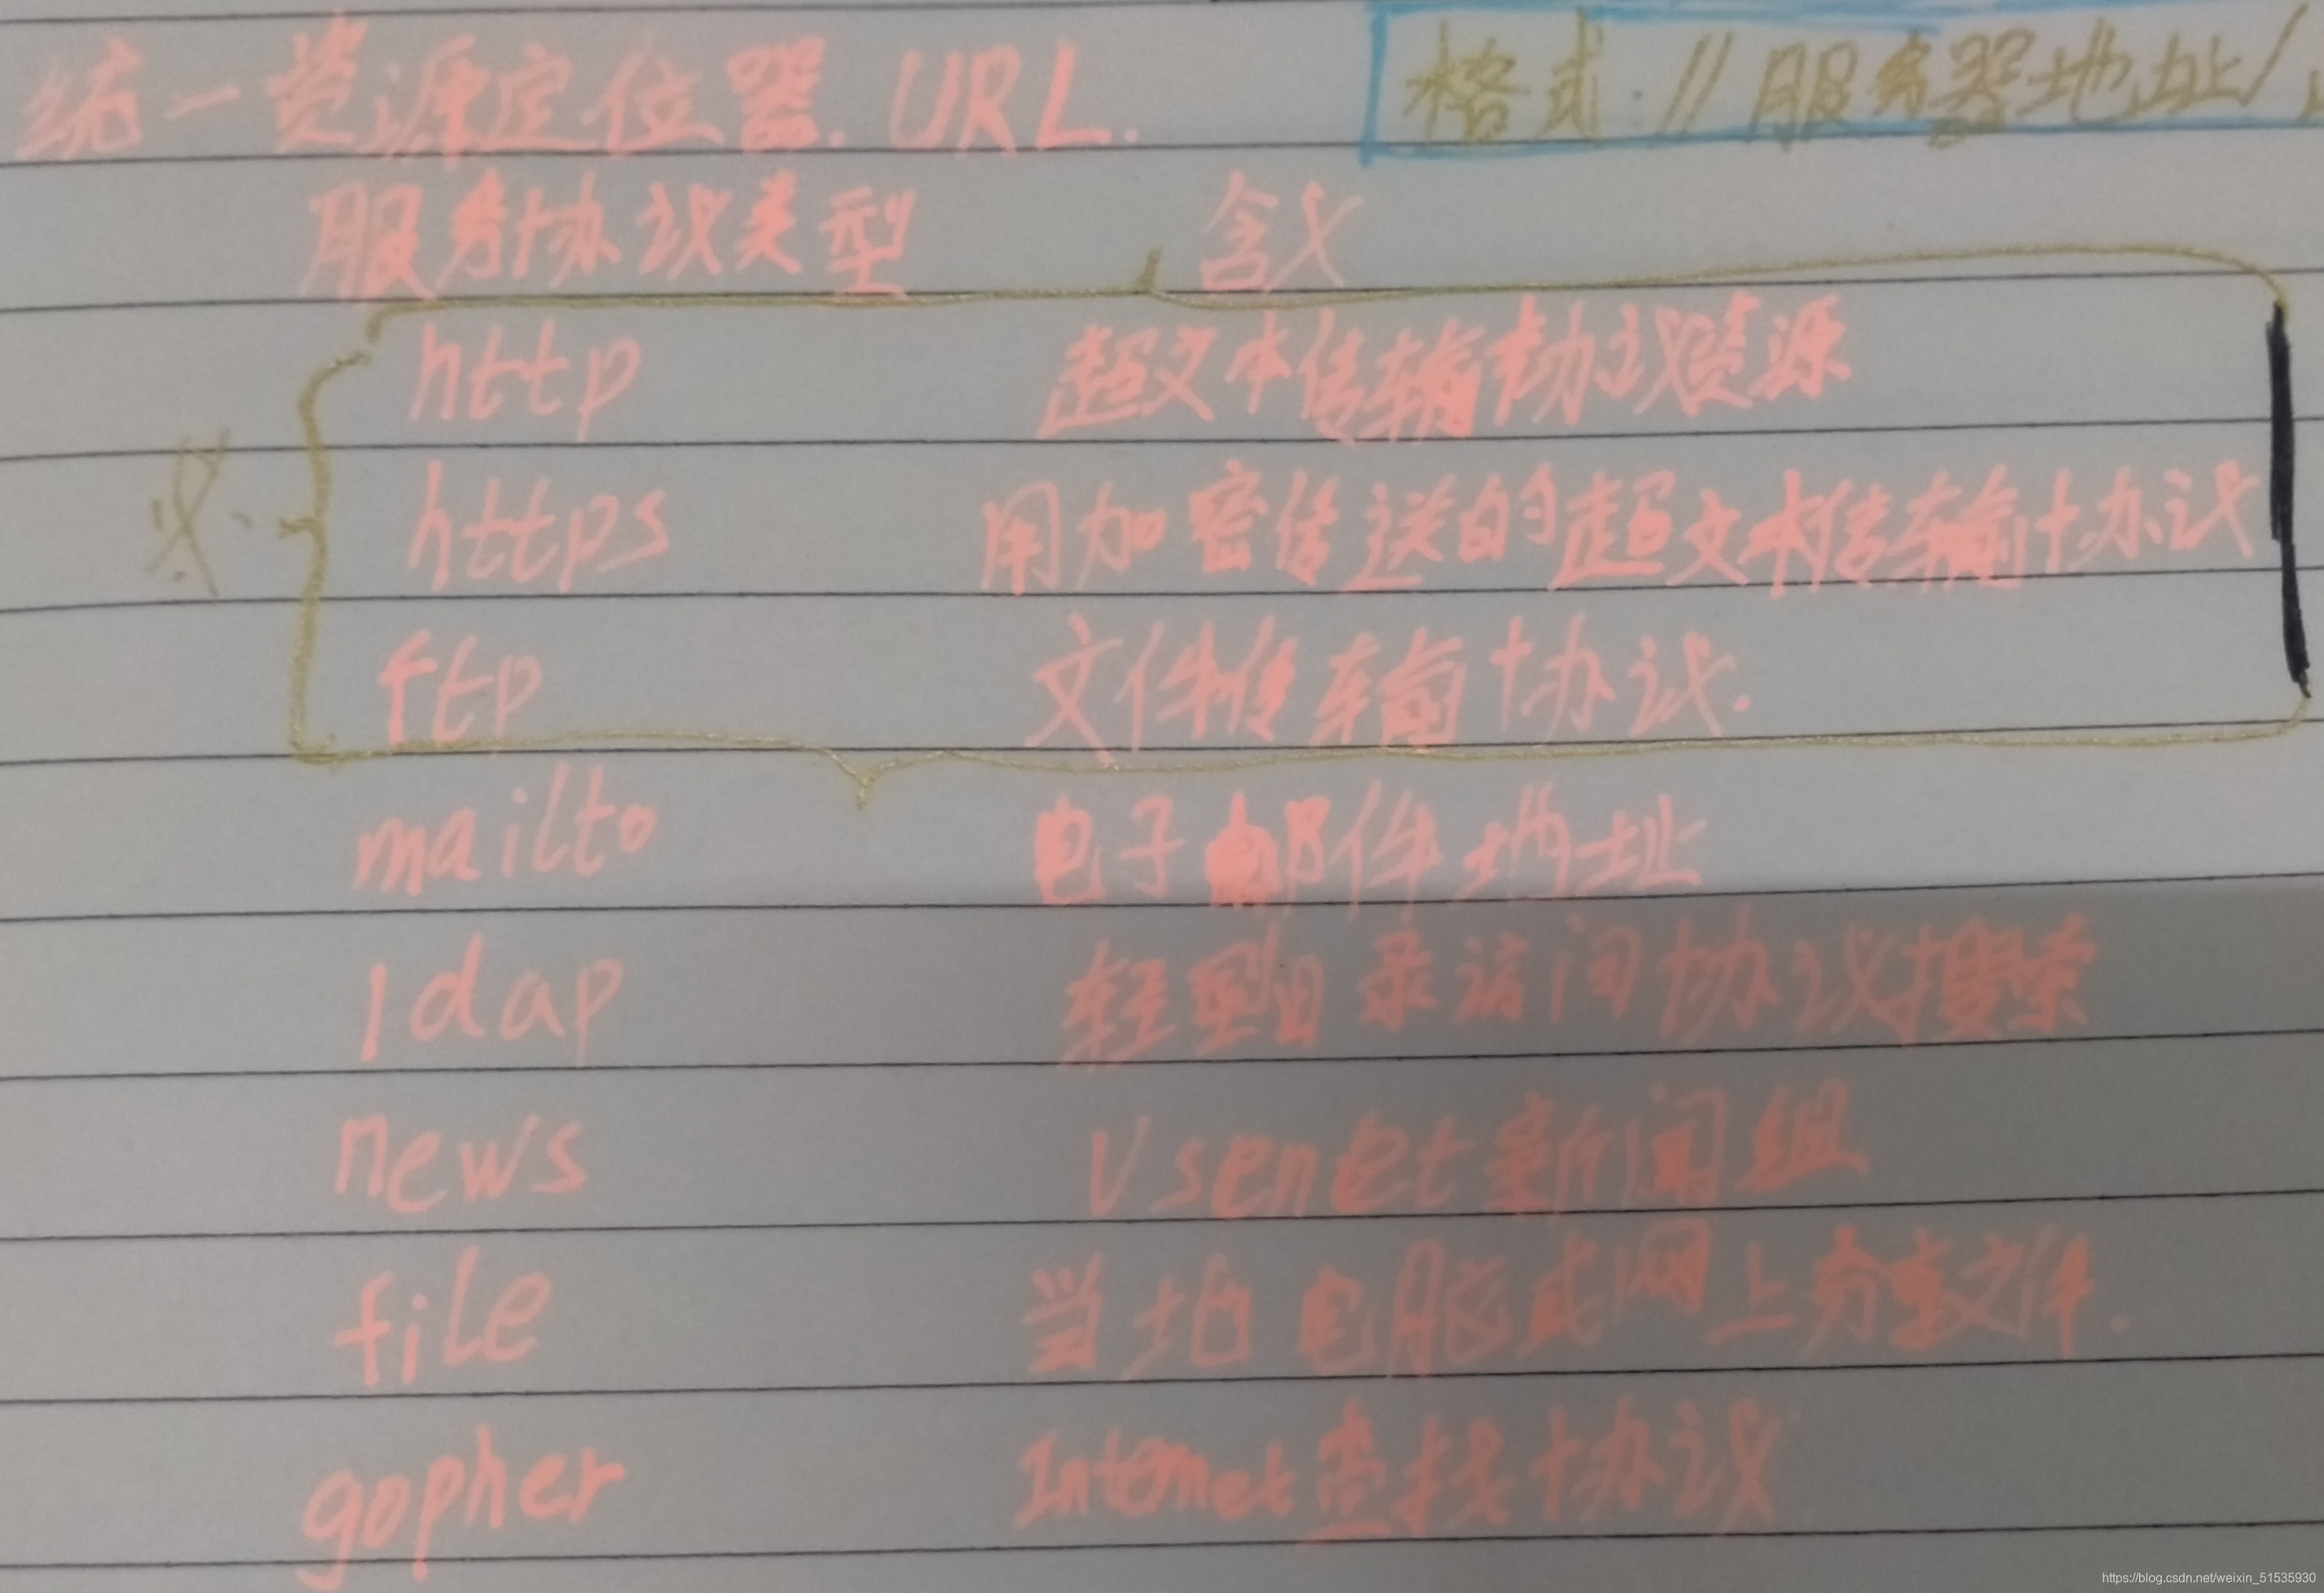 统一资源定位器. URL.
格式://服务器地址/
服务协议类型 含义
http 超文本传输协议资源
https 用加密传送的超文本传输协议
ftp 文件传输协议.
mailto 电子邮件地址
ldap 轻型目录访问协议搜索
news Usenet新闻组
file 当地电脑或网上分享文件.
gopher Internet查找协议
https://blog.csdn.net/weixin_51535930